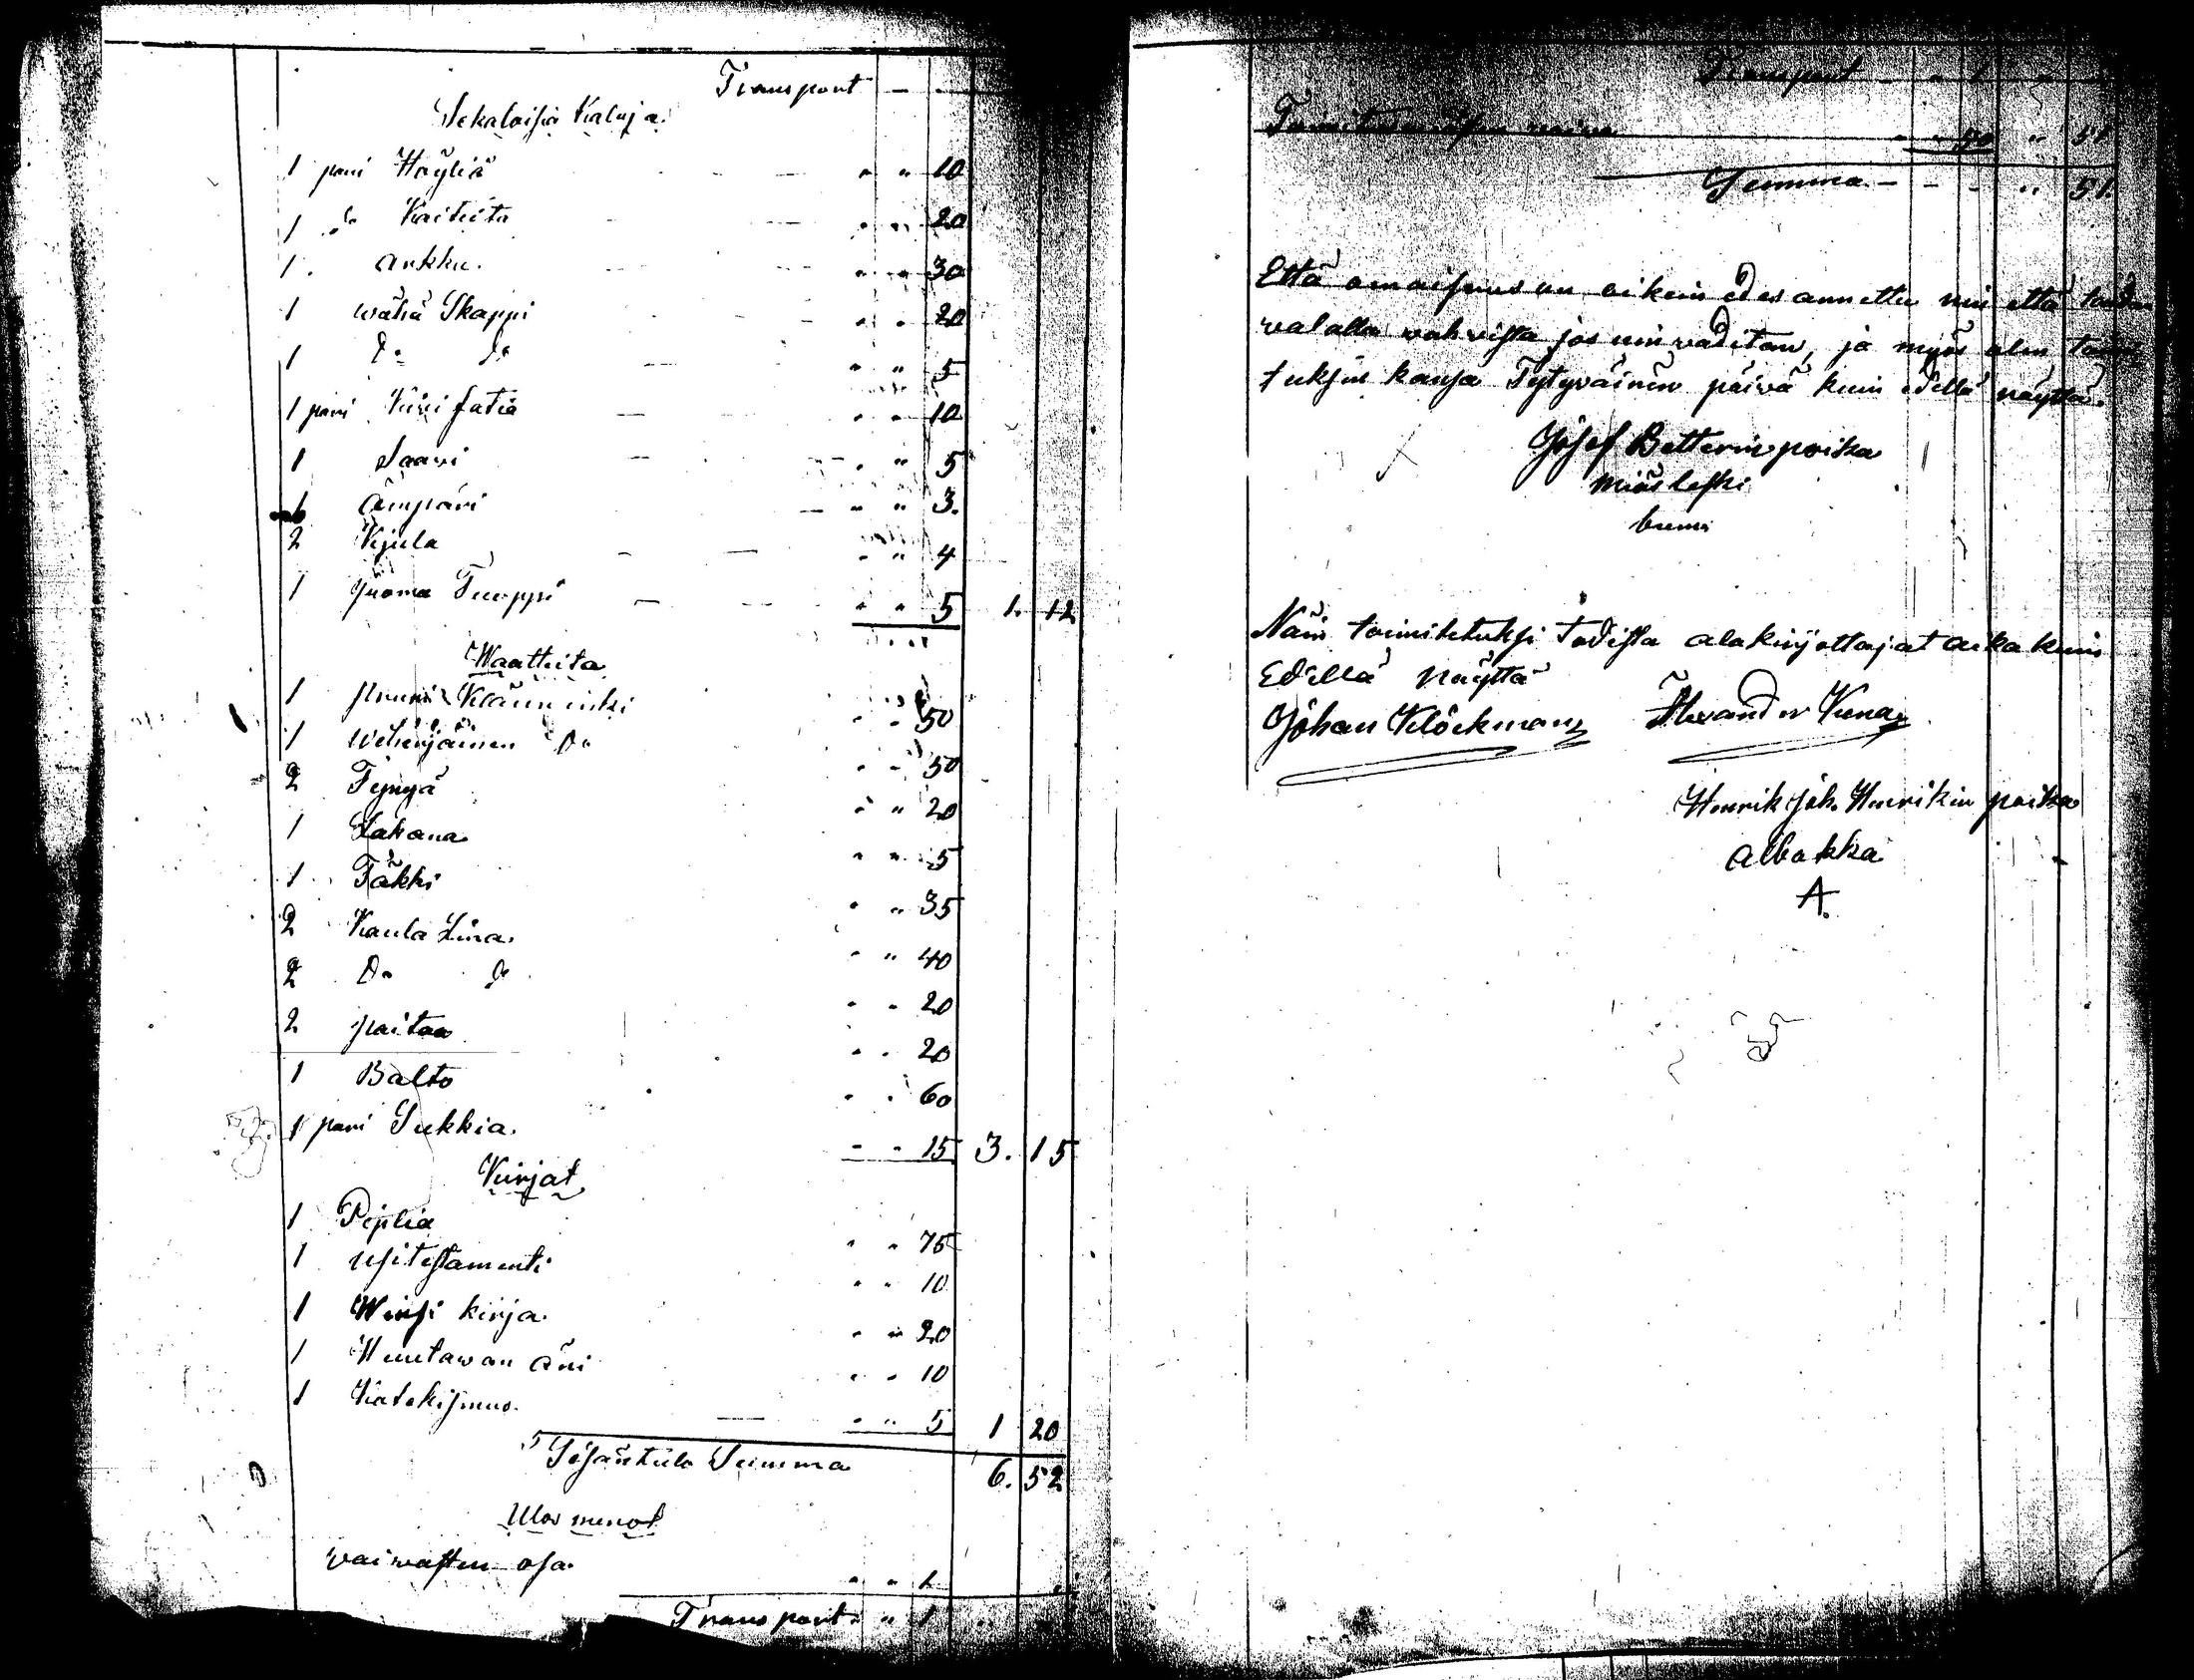 Transport - -
Sekalaisia Kaluja
1 pari Höyliä " " 10
1 do Kaiteita " " 20
1. arkku. " " 30
1 wähä Skappi " " 20
1 do do " " 5
1 pari Kirifatia " " 10
1 Saavi " " 5
1 ämpäri " " 3.
2 Kiula " " 4
1 Juoma Tuoppi " " 5 1. 12
Waatteita
1 pruuni Klänninki " " 50
1 wihriäinen Do " " 50
2 Tyynyä " " 20
1 Lakana " " 5
1 Täkki " " 35
2 Kaula Lina. " " 40
2 Do do " " 20
2 paitaa " " 20
1 Balto " " 60
1 pari Sukkia. " " 15 3. 15
Kirjat
1 Piplia " " 75
1 usitestamenti " " 10
1 Wirsi kirja. " " 20
1 Huutawan äni " " 10
1 Katekismus. " " 5 1 20
Sisäntulo Summa 6. 52
Ulos menot
vaivasten osa. " " 1
Transport " " 1 "
Transport - " 1 "
" 51
Summa - - - " 51.
Että omaisuus on oikein edes annettu nin että
valalla vahvista jos nin vaditan, ja myös olen
tuksin kansa Tytyväinen päivä kuin edellä näyttä.
Josef Betterin poika
mies leski
bumi
Näin toimitetuksi todista alakirjottajat aika kuin
Edellä näyttä
Johan Klöckman Alexander Kuna
Henrik Joh. Henrikin poika
Albakka
A.